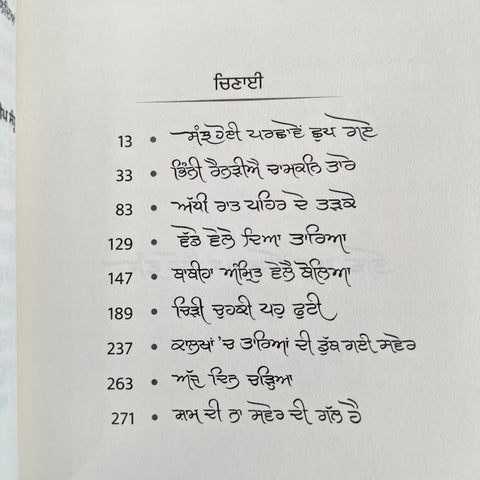 ਚਿਣਾਈ
13 • ਸੰਝ ਹੋਈ ਪਰਛਾਵੇਂ ਛੁਪ ਗਏ
33 • ਭਿੰਨੀ ਰੈਨੜੀਐ ਚਾਮਕਨਿ ਤਾਰੇ
83 • ਅੱਧੀ ਰਾਤ ਪਹਿਰ ਦੇ ਤੜਕੇ
129 • ਵੱਡੇ ਵੇਲੇ ਦਿਆ ਤਾਰਿਆ
147 • ਬਾਬੀਹਾ ਅੰਮ੍ਰਿਤ ਵੇਲੈ ਬੋਲਿਆ
189 • ਚਿੜੀ ਚੁਹਕੀ ਪਹੁ ਫੁਟੀ
237 • ਕਾਲਖਾਂ 'ਚ ਤਾਰਿਆਂ ਦੀ ਡੁੱਬ ਗਈ ਸਵੇਰ
263 • ਅੱਜ ਦਿਨ ਚੜ੍ਹਿਆ
271 • ਸ਼ਾਮ ਦੀ ਨਾ ਸਵੇਰ ਦੀ ਗੱਲ ਹੈ